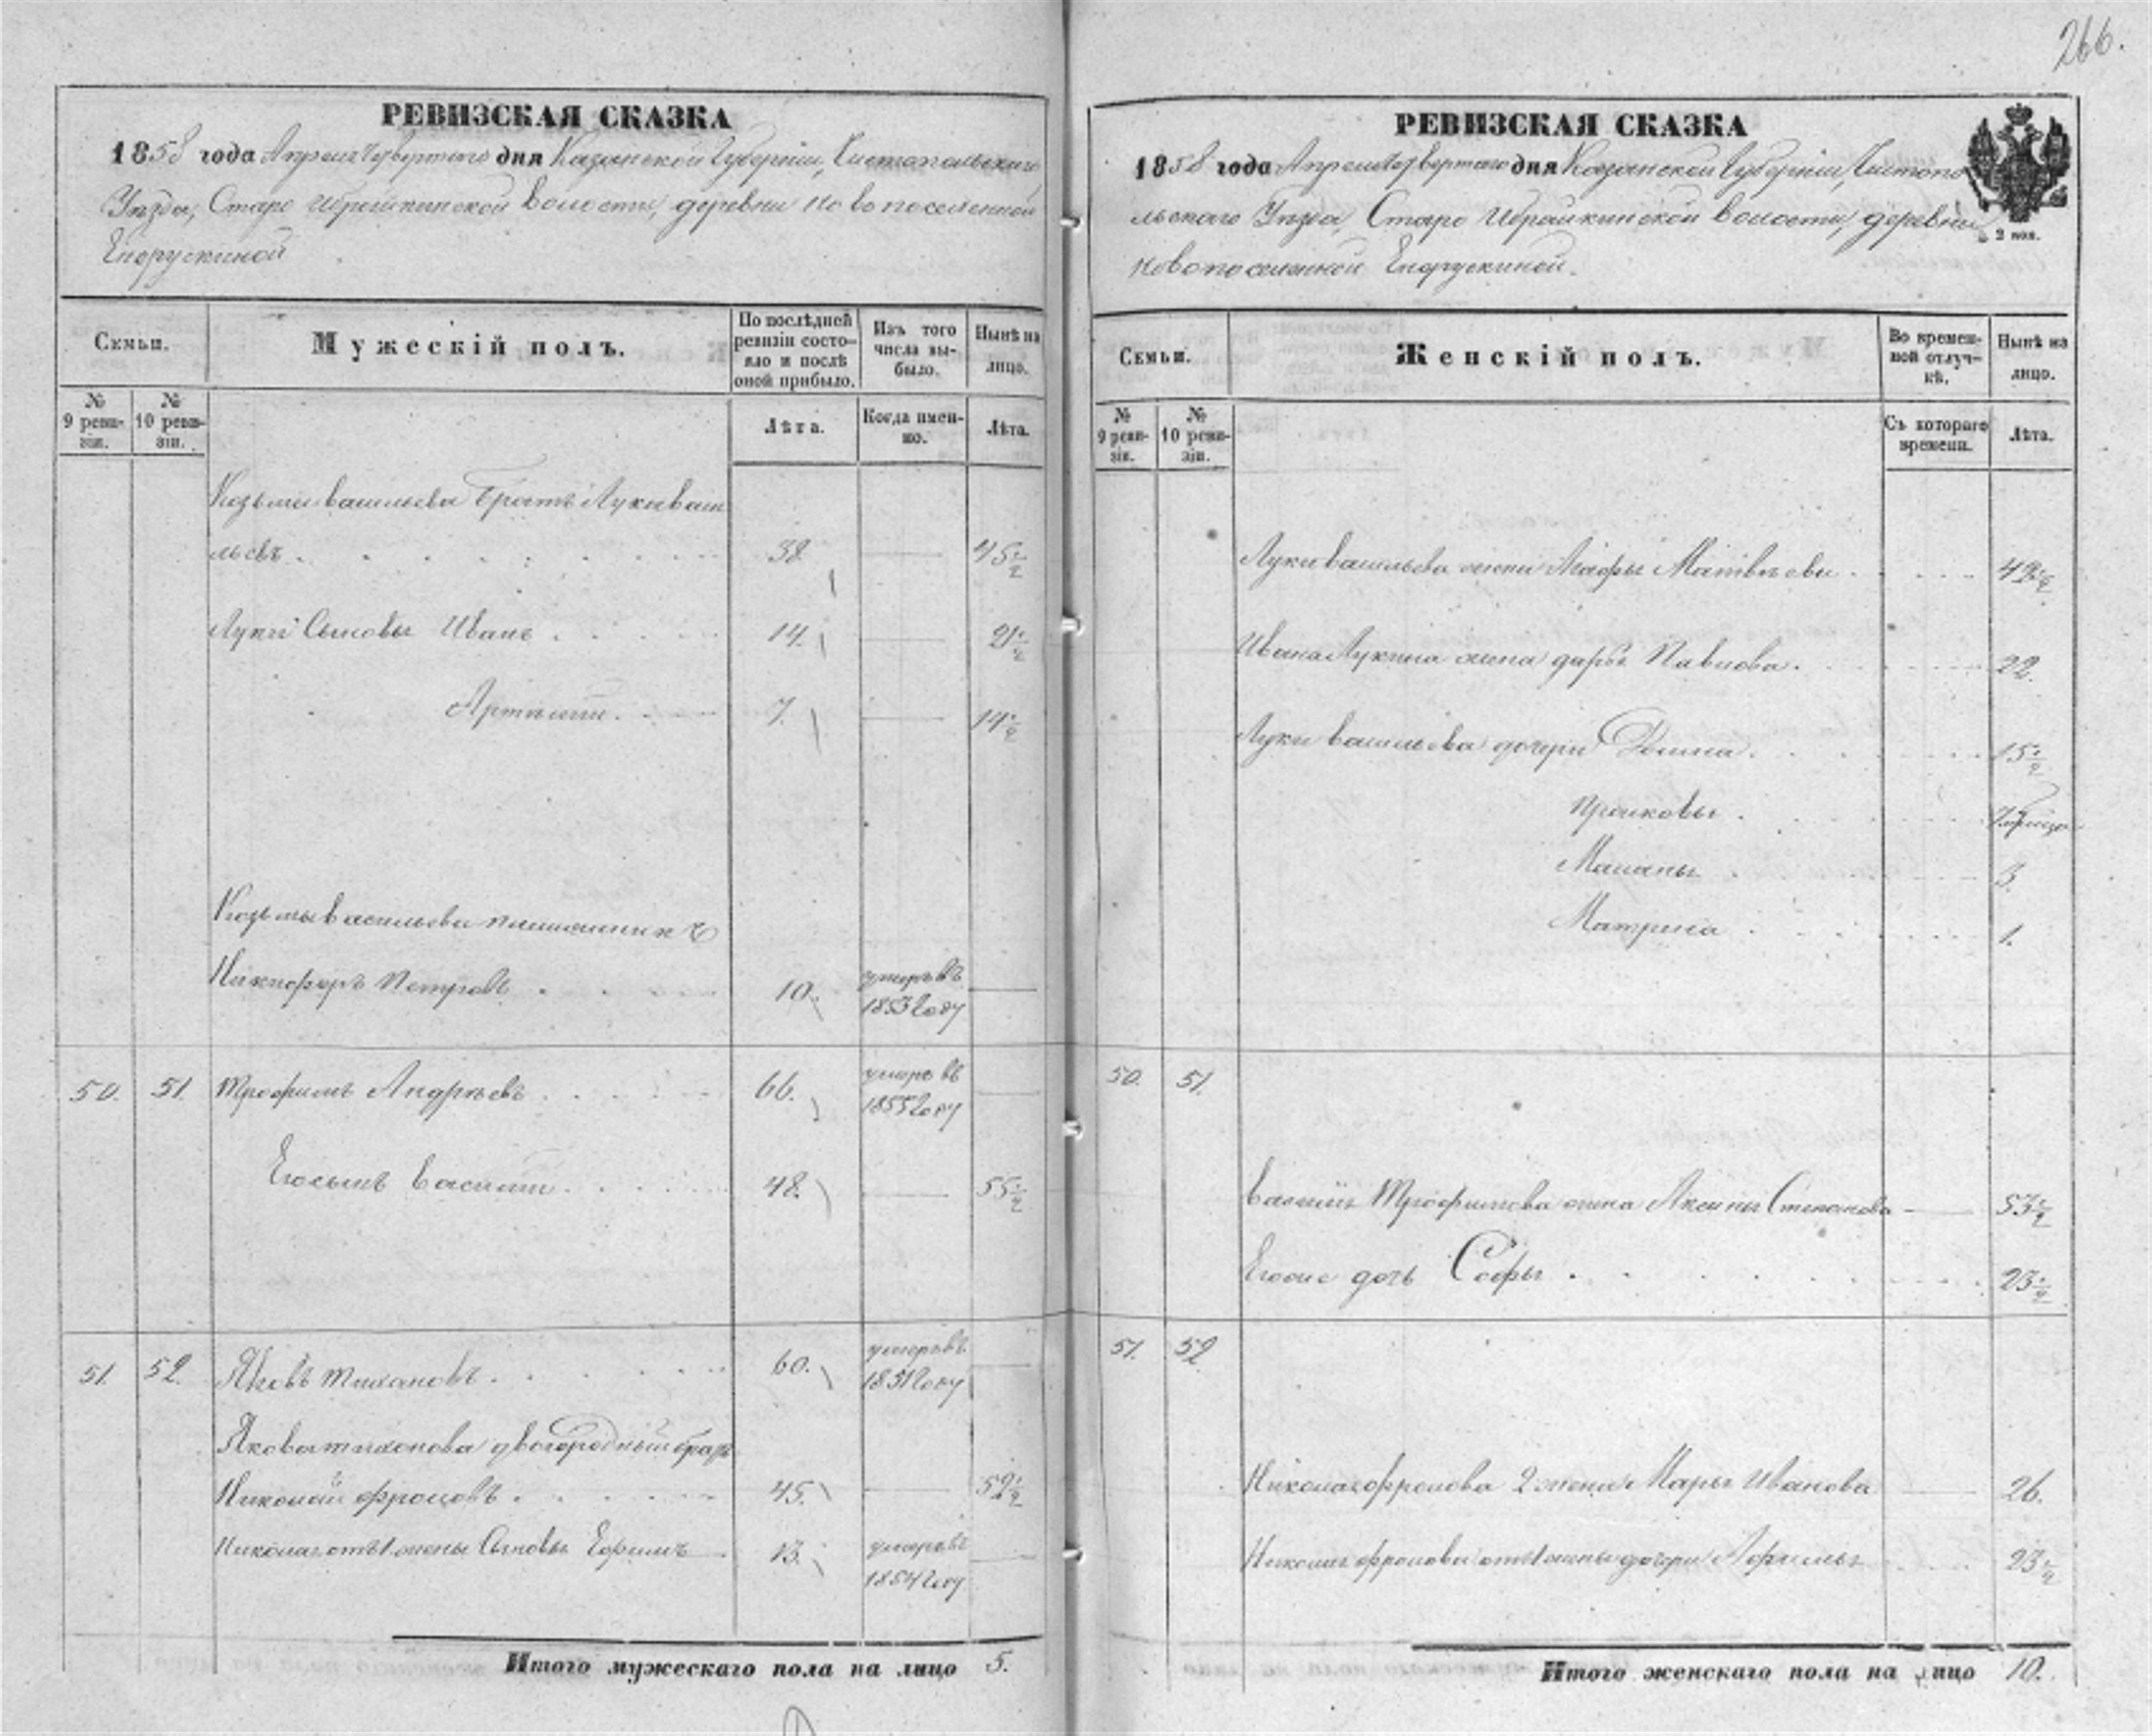 266.
РЕВИЗСКАЯ СКАЗКА
1858 года Апреля Четвертаго дня Казанской Губерніи, Чистопольскаго
Уѣзда, Старо Ибрайкинской волости, деревни Новопоселенной
Егоркиной
Семьи.
Мужескій полъ.
По послѣдней
ревизіи состо-
яло и послѣ
оной прибыло.
Изъ того
числа вы-
было.
Нынѣ на
лицо.
№
9 реви-
зіи.
№
10 реви-
зіи.
Лѣта.
Когда имен-
но.
Лѣта.
Козьмы Васильева братъ Лука Васи
льевъ . . . . . . 38. — 45½
Луки Сыновья Иванъ . . . . 14. — 21½
Артемій . . . 7. — 14½
Козьмы Васильева племянникъ
Никифоръ Петровъ . . . . 10. умеръ въ 1853 году —
50. 51. Трофимъ Андрѣевъ . . . . 66. умеръ въ 1855 году —
Егосынъ Василій . . . . 48. — 55½
51. 52. Яковъ Тихановъ . . . . 60. умеръ въ 1851 году —
Якова Тиханова двоюродный братъ
Николай Фроловъ . . . . 45. — 52½
Николая отъ 1 жены Сыновья Ефимъ . 13. умеръ въ 1854 году —
Итого мужескаго пола на лицо 5.
РЕВИЗСКАЯ СКАЗКА
1858 года Апреля Четвертаго дня Казанской Губерніи, Чистопо
льскаго Уѣзда, Старо Ибрайкинской волости, деревни
Новопоселенной Егоркиной.
2 коп.
Семьи.
Женскій полъ.
Во времен-
ной отлуч-
кѣ.
Нынѣ на
лицо.
№
9 реви-
зіи.
№
10 реви-
зіи.
Съ котораго
времени.
Лѣта.
Луки Васильева жена Агафья Матвѣева . . . . 42½
Ивана Лукина жена Дарья Павлова . . . . 22.
Луки Васильева дочери . . . . 15½
. . . . 7
Маланья . . . . 3.
Матрена . . . . 1.
50. 51.
Василья Трофимова жена Аксинья Степанова — 53½
Егоже дочь Софья . . . . 23½
51. 52.
Николая Фролова 2 жена Марья Иванова — 26.
Николая Фролова отъ 1 жены дочери . . . 23½
Итого женскаго пола на лицо 10.